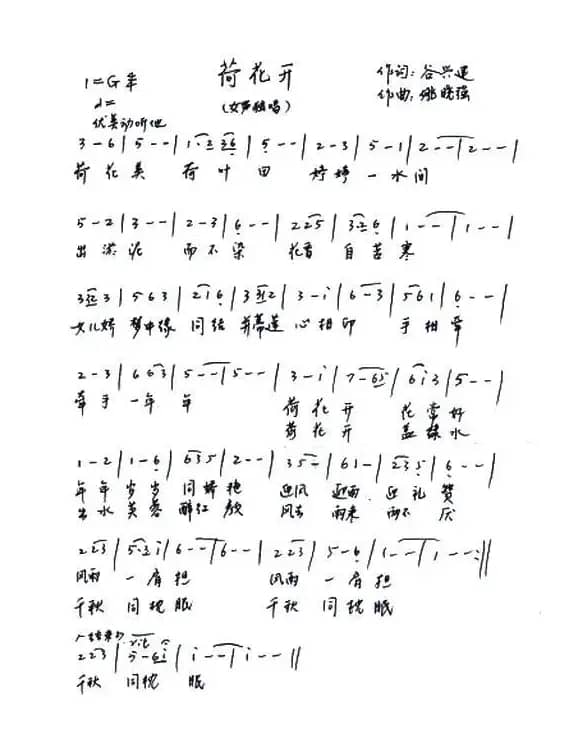 荷花开
1=G 3/4
(女声独唱)
作词:谷兴运
作曲:邢晓强
优美动听地
3 - 6 | 5 - - | 1·2 36 | 5 - - | 2 - 3 | 5 - 1 | 2 - - | 2 - - |
荷 花 美 荷 叶 田 婷婷 一 水 间
5 - 2 | 3 - - | 2 - 3 | 6 - - | 2 25 | 3·2 6 | 1 - - | 1 - - |
出 淤 泥 而 不 染 花香 自 苦 寒
3 32 3 | 5 6 3 | 2 1 6 | 3 312 | 3 - i | 6 - 3 | 5 6 1 | 6 - - |
女儿娇 梦中缘 同结 并蒂莲 心 相 印 手 相 牵
2 - 3 | 6 6 3 | 5 - - | 5 - - | 3 - i | 7 - 65 | 6 i 3 | 5 - - |
牵 手 一 年 年 荷 花 开 花 常 好
荷 花 开 盖 绿 水
1 - 2 | 1 - 6 | 6 3 5 | 2 - - | 3 5 - | 6 1 - | 2 3 5 | 6 - - |
年 年 岁 岁 同 娇 艳 迎风 迎雨 迎 礼 赞
出 水 芙 蓉 醉 红 颜 风去 雨来 而不 厌
2 23 | 5·3 i | 6 - - | 6 - - | 2 23 | 5 - 6 | 1 - - | 1 - - :||
风雨 一 肩 担 风雨 一 肩 担
千秋 同 枕 眠 千秋 同 枕 眠
rit
2 23 | 5 - 6i | i - - | i - - ||
千秋 同枕 眠